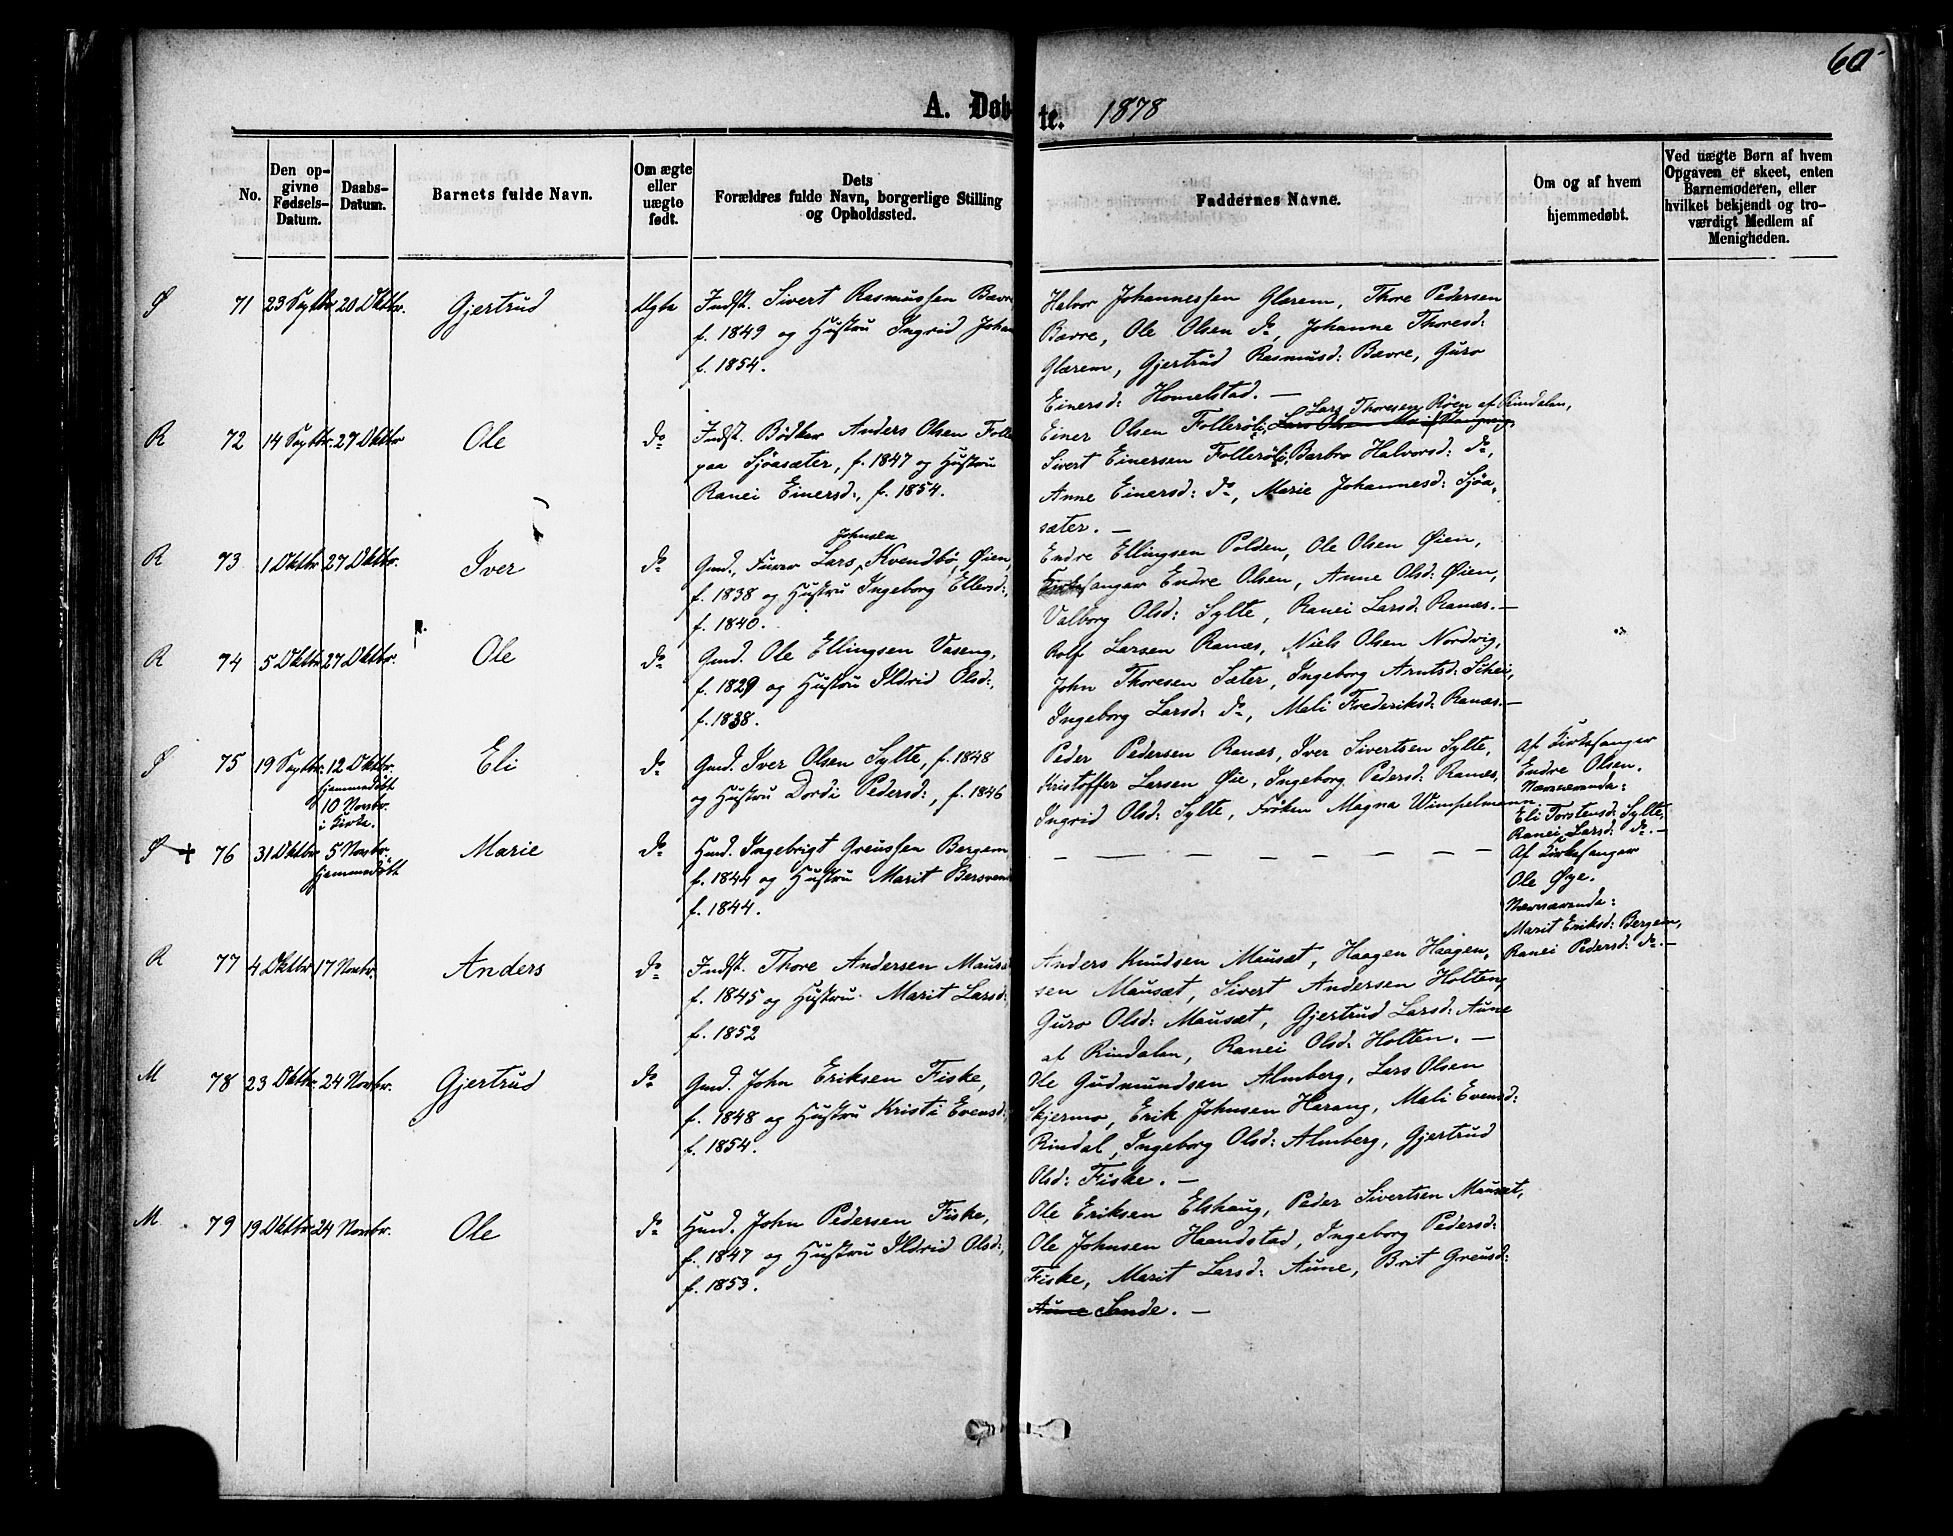 60
A. Døbte. 1878
No.
Den opgivne Fødsels-Datum.
Daabs-Datum.
Barnets fulde Navn.
Om ægte eller uægte født.
Dets Forældres fulde Navn, borgerlige Stilling og Opholdssted.
Faddernes Navne.
Om og af hvem hjemmedøbt.
Ved uægte Børn af hvem Opgaven er skeet, enten Barnemøderen, eller hvilket bekjendt og troværdigt Medlem af Menigheden.
S 71 23 Septbr. 20 Oktbr. Gjertrud Ægte
Indst. Sivert Rasmussen Bævre
f. 1849 og Hustru Ingrid Johan
f. 1854.
Halvor Johannessen Glærem, Thore Pedersen
Bævre, Ole Olsen do, Johanne Thoresd:
Glærem, Gjertrud Rasmusd: Bævre, Guro
Einersd: Homelstad. —
R 72 14 Septbr. 27 Oktbr. Ole do
Indst. Bødker Anders Olsen Folle
paa Sjøasæter, f. 1847 og Hustru
Ranei Einersd:, f. 1854.
Lars Thoresen Røen af Rindalen,
Einer Olsen Follerøli, Lars Olsen
Sivert Einersen Follerøli, Barbro Halvorsd: do,
Anne Einersd: do, Marie Johannesd: Sjøa-
sæter. —
R 73 1 Oktbr. 27 Oktbr. Iver do
Johnsen
Gmd., Furer Lars Kvendbø, Øien,
f. 1838 og Hustru Ingeborg Ellersd:,
f. 1840.
Endre Ellingsen Polden, Ole Olsen Øien,
Kirkesanger Endre Olsen, Anne Olsd: Øien,
Valborg Olsd: Sylte, Ranei Larsd: Ranæs. —
R 74 5 Oktbr. 27 Oktbr. Ole do
Gmd. Ole Ellingsen Vaseng,
f. 1829 og Hustru Ildrid Olsd:,
f. 1838.
Rolf Larsen Ranæs, Niels Olsen Nordvig,
John Thoresen Sæter, Ingeborg Arntsd: Schei,
Ingeborg Larsd: do, Mali Frederiksd: Ranæs. —
S 75 19 Septbr. 12 Oktbr. Eli do
hjemmedøbt
10 Novbr.
i Kirke.
Gmd. Iver Olsen Sylte, f. 1848
og Hustru Dordi Pedersd:, f. 1846
Peder Pedersen Ranæs, Iver Sivertsen Sylte,
Kristoffer Larsen Øie, Ingeborg Pedersd: Ranæs,
Ingrid Olsd: Sylte, Frøken Magna Wimpelmann
Af Kirkesanger
Endre Olsen.
Nærværende:
Eli Torstensd: Sylte,
Ranei Larsd: do. —
S + 76 31 Oktbr. 5 Novbr. Marie do
hjemmedøbt
Gmd. Ingebrigt Greussen Bergem
f. 1844 og Hustru Marit Bersvend
f. 1844.
— — — — — — — —
Af Kirkesanger
Ole Øye.
Nærværende:
Marit Eriksd: Bergem,
Ranei Pedersd: do. —
R 77 4 Oktbr. 17 Novbr. Anders do
Indst. Thore Andersen Mausæ
f. 1845 og Hustru Marit Larsd:
f. 1852
Anders Knudsen Mausæt, Haagen Haagen-
sen Mausæt, Sivert Andersen Holten,
Guro Olsd: Mausæt, Gjertrud Larsd: Aune
af Rindalen, Ranei Olsd: Holten. —
M 78 23 Oktbr. 24 Novbr. Gjertrud do
Gmd. John Eriksen Fiske,
f. 1848 og Hustru Kristi Evensd:
f. 1854.
Ole Gudmundsen Almberg, Lars Olsen
Skjermo, Erik Johnsen Harang, Mali Evensd:
Rindal, Ingeborg Olsd: Almberg, Gjertrud
Olsd: Fiske. —
M 79 19 Oktbr. 24 Novbr. Ole do
Gmd. John Pedersen Fiske,
f. 1847 og Hustru Ildrid Olsd:,
f. 1853.
Ole Eriksen Elshaug, Peder Sivertsen Mausæt,
Ole Johnsen Haandstad, Ingeborg Pedersd:
Fiske, Marit Larsd: Aune, Brit Greusd:
Aune Sande. —